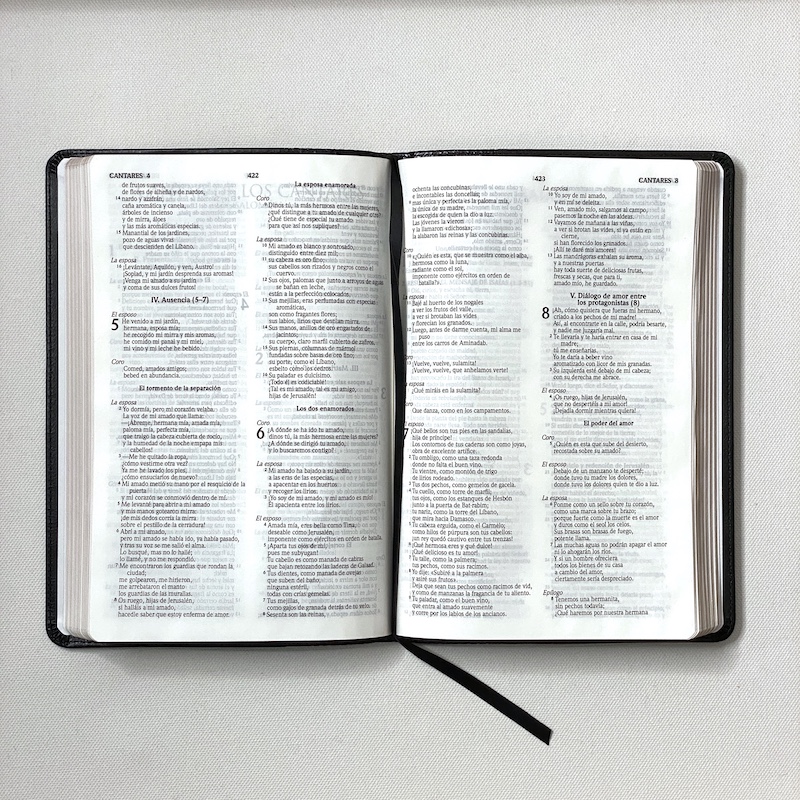 CANTARES 4
422
de frutos suaves,
de flores de alheña y de nardos,
14 nardo y azafrán,
caña aromática y canela,
árboles de incienso
y de mirra, áloes
y las más aromáticas especias.
15 Manantial de los jardines,
pozo de aguas vivas
que descienden del Líbano.
La esposa
16 ¡Levántate, Aquilón, y ven, Austro!
¡Soplad, y mi jardín despliegue sus aromas!
¡Venga mi amado a su jardín
y coma de sus dulces frutos!
IV. Ausencia (5-7)
El esposo
5 He venido a mi jardín,
hermana, esposa mía;
he recogido mi mirra y mis aromas,
he comido mi panal y mi miel,
mi vino y mi leche he bebido.
Coro
Comed, amados amigos;
bebed en abundancia.
El tormento de la separación
La esposa
2 Yo dormía, pero mi corazón velaba.
La voz de mi amado que llama:
—¡Ábreme, hermana mía, amada mía,
paloma mía, perfecta mía,
que traigo la cabeza cubierta de rocío,
y la humedad de la noche empapa mis
cabellos!
3 —Me he quitado la ropa,
¿cómo vestirme otra vez?
Ya me he lavado los pies,
¿cómo ensuciarlos de nuevo?
4 Mi amado metió su mano por el resquicio de la
puerta
y mi corazón se conmovió dentro de mí.
5 Me levanté para abrir a mi amado
y mis manos gotearon mirra:
¡de mis dedos corría la mirra
sobre el pestillo de la cerradura!
6 Abrí a mi amado,
pero mi amado se había ido, ya había pasado,
y tras su voz se me salió el alma.
Lo busqué, mas no lo hallé;
lo llamé, y no me respondió.
7 Me encontraron los guardias que rondan la
ciudad;
me golpearon, me hirieron,
me arrebataron el manto
los guardias de las murallas.
8 Os ruego, hijas de Jerusalén,
si halláis a mi amado,
hacedle saber que estoy enferma de amor.
La esposa enamorada
Coro
9 Dinos tú, la más hermosa entre las mujeres,
¿qué distingue a tu amado de cualquier otro?
¿Qué tiene de especial tu amado
para que así nos supliques?
La esposa
10 Mi amado es blanco y sonrosado,
distinguido entre diez mil;
11 su cabeza es oro fino;
sus cabellos son rizados y negros como el
cuervo.
12 Sus ojos, palomas que junto a arroyos de agua
se bañan en leche,
están a la perfección colocados.
13 Sus mejillas, eras perfumadas con especias
aromáticas,
son como fragantes flores;
sus labios, lirios que destilan mirra.
14 Sus manos, anillos de oro engastado de
jacintos;
su cuerpo, claro marfil cubierto de zafiros.
15 Sus piernas, columnas de mármol
fundadas sobre basas de oro fino;
su porte, como el Líbano,
esbelto como los cedros.
16 Su paladar es dulcísimo.
¡Todo él es codiciable!
¡Tal es mi amado, tal es mi amigo,
hijas de Jerusalén!
Los dos enamorados
Coro
6 ¿A dónde se ha ido tu amado,
dinos tú, la más hermosa entre las mujeres?
¿A dónde se dirigió tu amado,
y lo buscaremos contigo?
La esposa
2 Mi amado ha bajado a su jardín,
a las eras de las especias,
a apacentar en los huertos
y recoger los lirios.
3 ¡Yo soy de mi amado, y mi amado es mío!
Él apacienta entre los lirios.
El esposo
4 Amada mía, eres bella como Tirsa,
deseable como Jerusalén,
imponente como ejércitos en orden de batalla.
5 ¡Aparta tus ojos de mí,
pues me subyugan!
Tu cabello es como manada de cabras
que bajan retozando las laderas de Galaad.
6 Tus dientes, como manada de ovejas
que suben del baño;
ninguna estéril,
todas con crías gemelas.
7 Tus mejillas,
como gajos de granada detrás de tu velo.
8 Sesenta son las reinas,
423
CANTARES 8
ochenta las concubinas,
e incontables las doncellas;
9 mas única y perfecta es la paloma mía,
la única de su madre,
la escogida de quien la dio a luz.
Las jóvenes la vieron
y la llamaron «dichosa»;
la alabaron las reinas y las concubinas.
Coro
10 «¿Quién es esta, que se muestra como el alba,
hermosa como la luna,
radiante como el sol,
imponente como ejércitos en orden de
batalla?».
esposa
Bajé al huerto de los nogales
a ver los frutos del valle,
a ver si brotaban las vides
y florecían los granados.
12 Luego, antes de darme cuenta, mi alma me
puso
entre los carros de Aminadab.
Coro
¡Vuelve, vuelve, sulamita!
¡Vuelve, vuelve, que anhelamos verte!
esposa
¿Qué miráis en la sulamita?
Coro
Que danza, como en los campamentos.
esposo
7 ¡Qué bellos son tus pies en las sandalias,
hija de príncipe!
Los contornos de tus caderas son como joyas,
obra de excelente artífice.
2 Tu ombligo, como una taza redonda
donde no falta el buen vino.
Tu vientre, como montón de trigo
de lirios rodeado.
3 Tus dos pechos, como gemelos de gacela.
4 Tu cuello, como torre de marfil;
tus ojos, como los estanques de Hesbón
junto a la puerta de Bat-rabim;
tu nariz, como la torre del Líbano,
que mira hacia Damasco.
5 Tu cabeza erguida, como el Carmelo;
como hilos de púrpura son tus cabellos:
¡un rey quedó cautivo entre tus trenzas!
6 ¡Qué hermosa eres y qué dulce!
¡Qué delicioso es tu amor!
7 Tu talle, como la palmera,
tus pechos, como sus racimos.
8 Yo dije: «Subiré a la palmera
y asiré sus frutos».
Deja que sean tus pechos como racimos de vid,
y como de manzanas la fragancia de tu aliento.
9 Tu paladar, como el buen vino,
que entra al amado suavemente
y corre por los labios de los ancianos.
La esposa
10 Yo soy de mi amado,
y en mí se deleita.
11 Ven, amado mío, salgamos al campo,
pasemos la noche en las aldeas.
12 Vayamos de mañana a las viñas,
a ver si brotan las vides, si ya están en
cierne,
si han florecido los granados.
¡Allí te daré mis amores!
13 Las mandrágoras exhalan su aroma,
y a nuestras puertas
hay toda suerte de deliciosas frutas,
frescas y secas, que para ti,
amado mío, he guardado.
V. Diálogo de amor entre
los protagonistas (8)
8 ¡Ah, cómo quisiera que fueras mi hermano,
criado a los pechos de mi madre!
Así, al encontrarte en la calle, podría besarte,
y nadie me juzgaría mal.
2 Te llevaría y te haría entrar en casa de mi
madre;
tú me enseñarías.
Yo te daría a beber vino
aromatizado con licor de mis granadas.
3 Su izquierda esté debajo de mi cabeza;
con su derecha me abrace.
El esposo
4 ¡Os ruego, hijas de Jerusalén,
que no despertéis a mi amor!
¡Dejadla dormir mientras quiera!
El poder del amor
Coro
5 ¿Quién es esta que sube del desierto,
recostada sobre su amado?
El esposo
Debajo de un manzano te desperté;
donde tuvo tu madre los dolores,
donde tuvo los dolores quien te dio a luz.
La esposa
6 Ponme como un sello sobre tu corazón,
como una marca sobre tu brazo;
porque fuerte como la muerte es el amor
y duros como el seol los celos.
Sus brasas son brasas de fuego,
potente llama.
7 Las muchas aguas no podrán apagar el amor
ni lo ahogarán los ríos.
Y si un hombre ofreciera
todos los bienes de su casa
a cambio del amor,
ciertamente sería despreciado.
Epílogo
8 Tenemos una hermanita,
sin pechos todavía;
¿Qué haremos por nuestra hermana